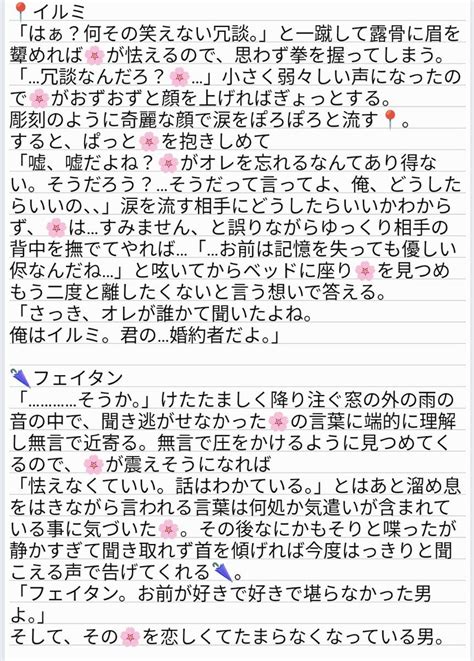 📍イルミ
「はぁ？何その笑えない冗談。」と一蹴して露骨に眉を
顰めれば🌸が怯えるので、思わず拳を握ってしまう。
「…冗談なんだろ？🌸…」小さく弱々しい声になったの
で🌸がおずおずと顔を上げればぎょっとする。
彫刻のように奇麗な顔で涙をぽろぽろと流す📍。
すると、ぱっと🌸を抱きしめて
「嘘、嘘だよね？🌸がオレを忘れるなんてあり得な
い。そうだろう？…そうだって言ってよ、俺、どうした
らいいの、、」涙を流す相手にどうしたらいいかわから
ず、🌸は…すみません、と誤りながらゆっくり相手の
背中を撫でてやれば…「…お前は記憶を失っても優しい
侭なんだね…」と呟いてからベッドに座り🌸を見つめ
もう二度と離したくないと言う想いで答える。
「さっき、オレが誰かて聞いたよね。
俺はイルミ。君の…婚約者だよ。」

🌂フェイタン
「…………そうか。」けたたましく降り注ぐ窓の外の雨の
音の中で、聞き逃がせなかった🌸の言葉に端的に理解
し無言で近寄る。無言で圧をかけるように見つめてく
るので、🌸が震えそうになれば
「怯えなくていい。話はわかている。」とはあと溜め息
をはきながら言われる言葉は何処か気遣いが含まれて
いる事に気づいた🌸。その後なにかもそりと喋ったが
静かすぎて聞き取れず首を傾げれば今度はっきりと聞
こえる声で告げてくれる🌂。
「フェイタン。お前が好きで好きで堪らなかった男
よ。」
そして、その🌸を恋しくてたまらなくなっている男。